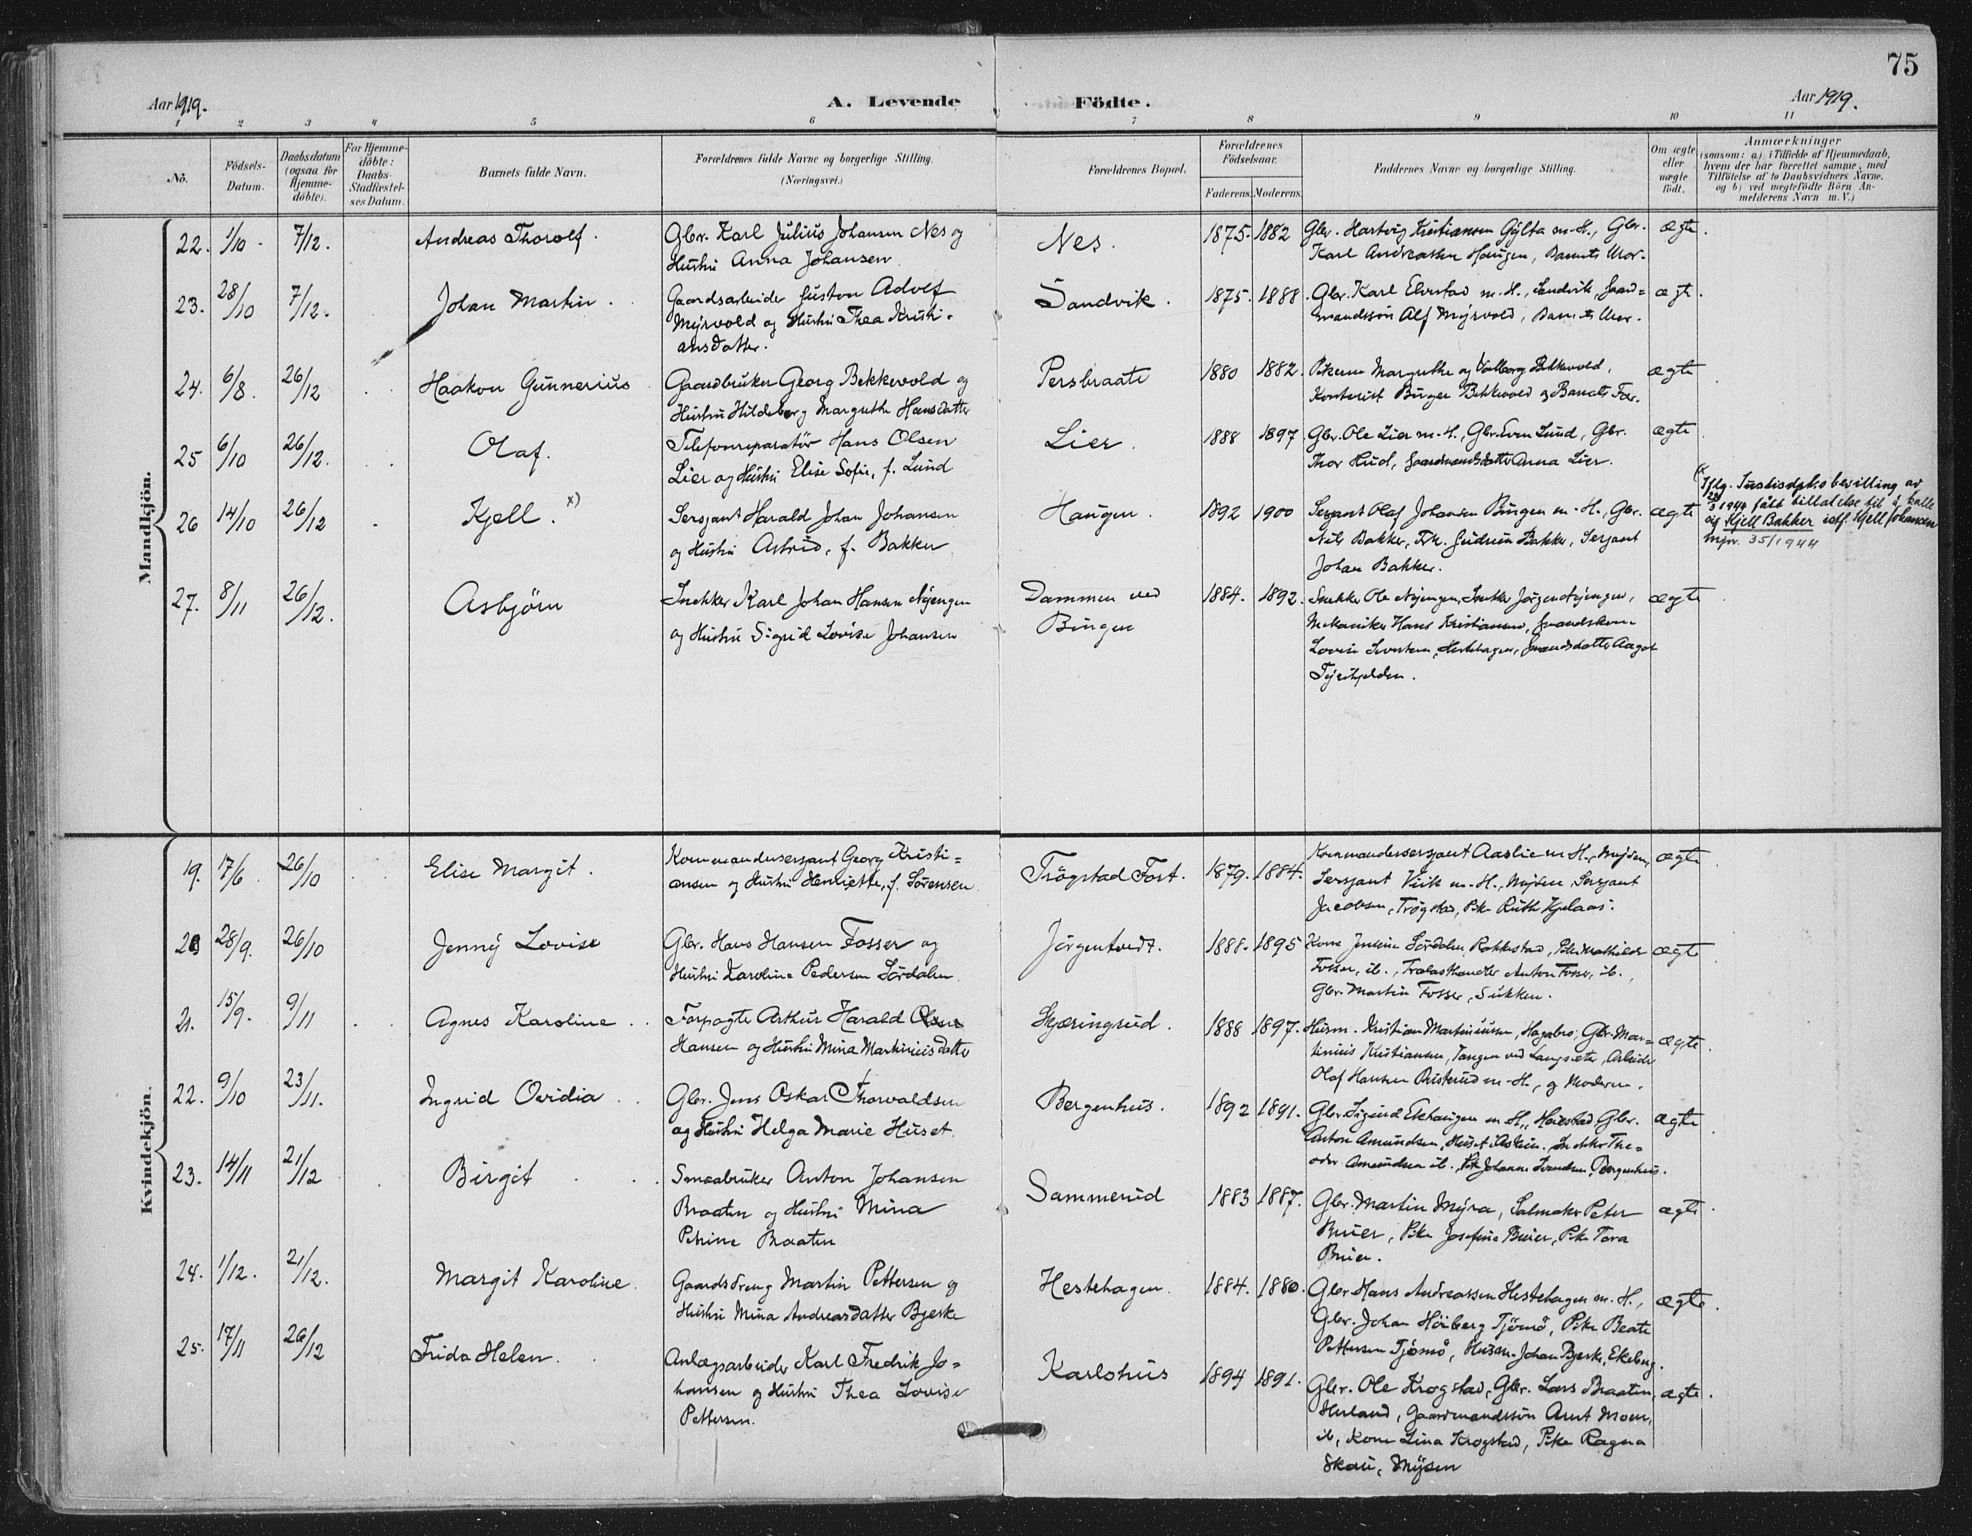 75
Aar 1919.
A. Levende Födte.
Aar 1919.
1 2 3 4 5 6 7 8 9 10 11
No.
Födsels-
Datum.
Daabsdatum
(ogsaa for
Hjemme-
döbte).
For Hjemme-
döbte:
Daabs-
Stadfæstel-
ses Datum.
Barnets fulde Navn.
Forældrenes fulde Navne og borgerlige Stilling.
(Næringsvei.)
Forældrenes Bopæl.
Forældrenes
Födselsaar.
Faderens. Moderens.
Faddernes Navne og borgerlige Stilling.
Om ægte
eller
uægte
födt.
Anmærkninger
(saasom: a) i Tilfælde af Hjemmedaab,
hvem der har forrettet samme, med
Tilföielse af to Daabsvidners Navne,
og b) ved uægtefödte Börn An-
melderens Navn m. V.)
Mandkjön.
22. 1/10 7/12. Andreas Thorolf.
Gbr. Karl Julius Johansen Nes og
Hustru Anna Johansen
Nes. 1875. 1882
Gbr. Hartvig Kristiansen Gylta m. H., Gbr.
Karl Andreassen Haugen, Barnets Mor.
ægte.
23. 28/10 7/12. Johan Martin.
Gaardsarbeider Gustav Adolf
Myrvold og Hustru Thea Kristi-
ansdatter.
Sandvik. 1875. 1888
Gbr. Karl Elvestad m. H., Sandvik, Gaard-
mandssön Alf Myrvold, Barnets Mor.
ægte.
24. 6/8. 26/12 Haakon Gunnerius
Gaardbruker Georg Bekkevold og
Hustru Hildeborg Margrethe Hansdatter
Persbraate 1880 1882.
Pikerne Margrethe og Valborg Bekkevold,
Kontorist Birger Bekkevold og Barnets Far.
ægte
25 6/10 26/12. Olaf.
Telefonreparatör Hans Olsen
Lier og Hustru Elise Sofie, f. Lund
Lier. 1888 1897
Gbr. Ole Lier m. H., Gbr. Even Lund, Gbr.
Thor Hud, Gaardmandsdatter Anna Lier.
ægte
26 14/10 26/12 Kjell. x)
Sersjant Harald Johan Johansen
og Hustru Astrid, f. Bakker
Haugen. 1892 1900
Sersjant Olaf Johansen Bingen m. H., Gbr.
Nils Bakker, Frk. Gudrun Bakker, Sersjant
Johan Bakker.
ægte
x) Iflg. Justisdpts bevilling av
23/3 1944 fått tillatelse til å kalle
sig Kjell Bakker istf. Kjell Johansen
Mjnr. 35/1944
27. 8/11 26/12. Asbjörn
Snekker Karl Johan Hansen Nyengen
og Hustru Sigrid Lovise Johansen
Dammen ved
Bingen
1884. 1892.
Snekker Ole Nyengen, Snekker Jörgen Nyengen,
Mekaniker Hans Kristiansen, Gaardskone
Lovise Sversteen, Hestehagen, Gaardsdatter Aagot
ægte
Kvindekjön.
19. 17/6 26/10 Elise Margit.
Kommandersersjant Georg Kristi-
ansen og Hustru Henriette, f. Sörensen.
Trögstad Fort. 1879. 1884.
Kommandersersjant Aaslie m. H., Mysen,
Sersjant Viik m. H., Mysen, Sersjant
Jacobsen, Trögstad, Pike Ruth Hjelaas.
ægte
20 28/9. 26/10 Jenny Lovise
Gbr. Hans Hansen Fosser og
Hustru Karoline Pedersen Sördalen.
Jörgentvedt. 1888. 1895
Kone Jensine Sördalen, Rakkestad, Pike Mathilde
Fosser, ib., Trælasthandler Anton Fosser, ib.,
Gbr. Martin Fosser, Sukken.
ægte
21. 15/9. 9/11 Agnes Karoline.
Forpagter Arthur Harald
Hansen og Hustru Mina Martiniusdatter
Skjæringsrud. 1888 1897.
Husm. Kristian Martiniussen, Hagabro, Gbr. Mar-
tinius Kristiansen, Tangen ved Langsæter, Arbeider
Olaf Hansen Buterud m. H., og Moderen.
ægte.
22. 9/10 23/11. Ingrid Ovidia
Gbr. Jens Oskar Thorvaldsen
og Hustru Helga Marie Huset.
Bergenhus. 1892 1891.
Gbr. Sigurd Ekhaugen m. H., Heiestad, Gbr.
Anton Amundsen, Huset i Askim, Snekker The-
odor Amundsen ib., Pike Johanne Svendsen, Bergenhus.
ægte
23. 14/11 21/12 Birgit
Smaabruker Anton Johansen
Braaten og Hustru Mina
Petrine Braaten
Sammerud 1883 1887.
Gbr. Martin Myra, Salmaker Peter
Buer, Pike Josefine Buer, Pike Tora
Buer.
ægte
24. 1/12. 21/12. Margit Karoline.
Gaardsdreng Martin Pettersen og
Hustru Mina Andreasdatter Bjerke
Hestehagen. 1884. 1880.
Gbr. Hans Andreassen Hestehagen m. H.,
Gbr. Johan Höiberg Tjömö, Pike Beate
Pettersen Tjömö, Husm. Johan Bjerke, Ekeberg.
ægte.
25. 17/11 26/12 Frida Helen.
Anlægsarbeider Karl Fredrik Jo-
hansen og Hustru Thea Lovise
Pettersen.
Karlshus 1894 1891.
Gbr. Ole Krogstad, Gbr. Lars Braaten,
Herland, Gaardmandssön Arnt Moen,
ib., Kone Lina Krogstad, Pike Ragna
Skau, Mysen
ægte.